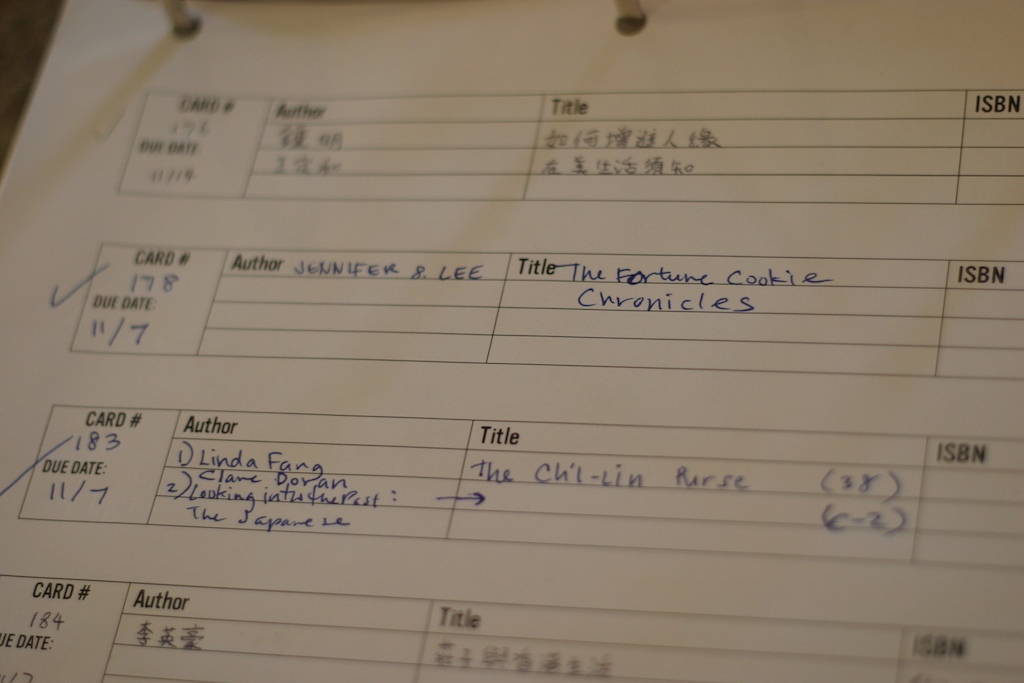 CARD # Author Title ISBN
176 鍾明 如何增進人緣
DUE DATE: 在美生活須知
11/14
CARD # Author JENNIFER 8. LEE Title The Fortune Cookie ISBN
178 Chronicles
DUE DATE:
11/7
CARD # Author Title ISBN
183 1) Linda Fang The Ch'i-Lin Purse (38)
DUE DATE: Clare Doran
11/7 2) Looking into the Past: → (C-2)
The Japanese
CARD # Author Title ISBN
184 李英豪 莊子與香港生活
UE DATE: